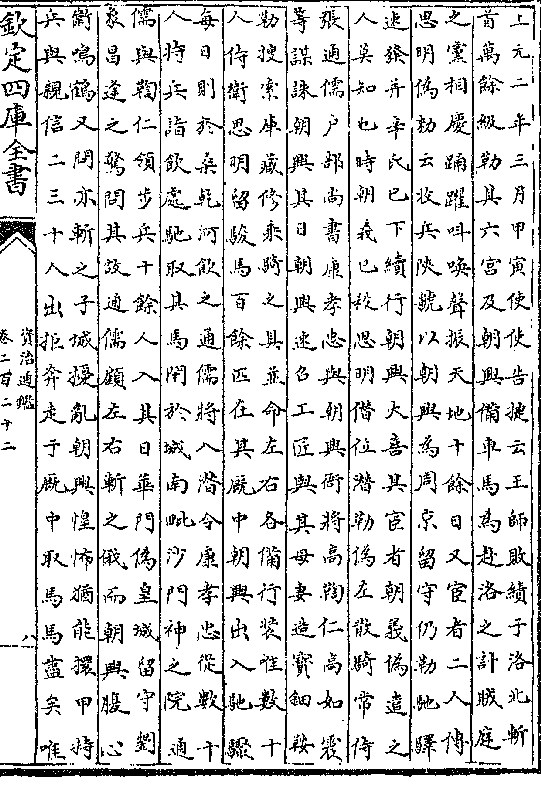 上元二年三月甲寅使使告捷云王師敗績于洛北斬
首萬餘級勒其六宫及朝興備車馬為赴洛之計賊庭
之黨相慶踊躍叫喚聲振天地十餘日又宦者二人傳
思明偽勅云收兵陜虢以朝興為周京留守仍勒馳驛
速發并辛氏已下續行朝興大喜其宦者朝義偽遣之
人莫知也時朝義已殺思明僣位潛勒偽左散騎常侍
張通儒户部尚書康孝忠與朝興衙將高鞫仁高如震
等謀誅朝興其日朝興速召工匠與其母妻造寳鈿鞍
勒搜索庫藏修乘騎之具並命左右各備行裝惟數十
人侍衛思明留駿馬百餘匹在其厩中朝興出入馳驟
每日則於桑乾河飲之通儒將入潛令康孝忠從數十
人持兵詣飲處馳取其馬閉於城南毗沙門神之院通
儒與鞫仁領步兵十餘人入其日華門偽皇城留守劉
象昌逢之驚問其故通儒顧左右斬之俄而朝興腹心
衛鳴鶴又問亦斬之子城擾亂朝興惶怖猶能擐甲持
兵與親信二三十人出拒奔走于厩中取馬馬盡矣唯
欽定四庫全書
資治通鑑
卷二百二十二
八